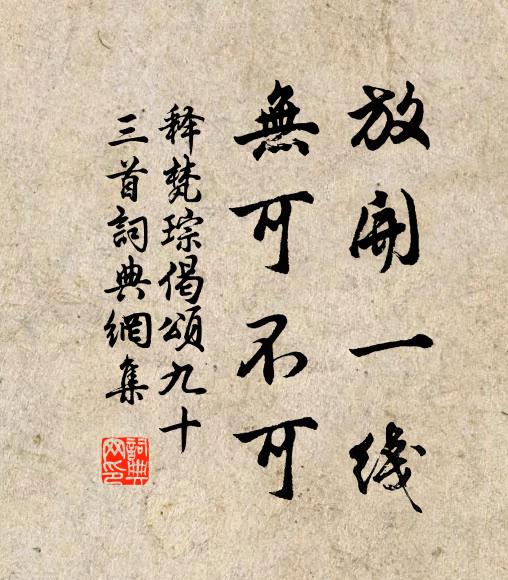 放開一线
無可不可
释梵琮偈頌九十
三首詞典網集
詞典网印